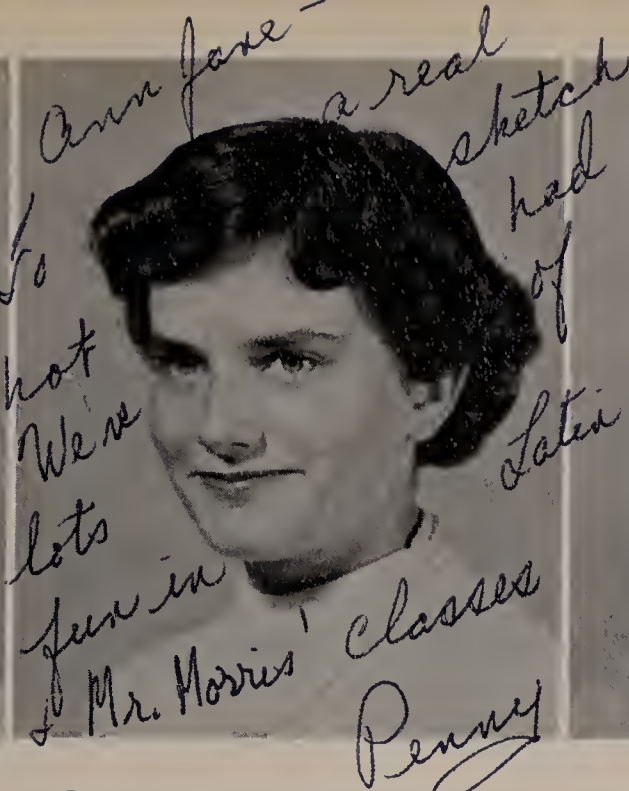 To Ann Jane – a real
hot sketch
We've had
lots of
fun in Latin
& Mr. Morris' classes
Penny